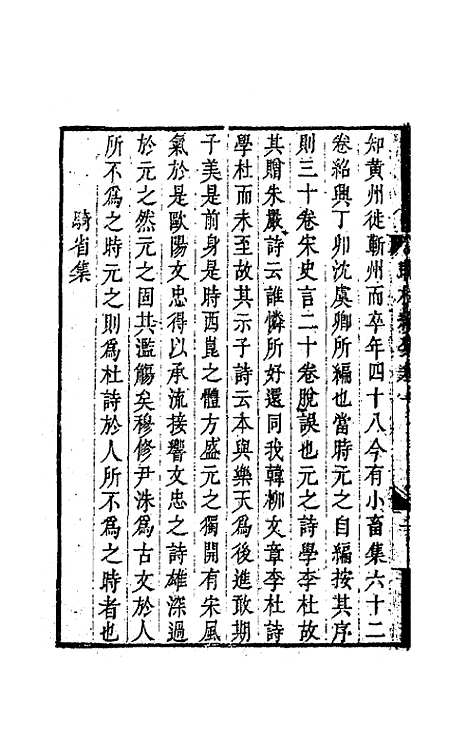 知黄州徙蘄州而卒年四十八今有小畜集六十二
卷紹興丁卯沈虞卿所編也當時元之自編按其序
則三十卷宋史言二十卷脫誤也元之詩學李杜故
其贈朱嚴詩云誰憐所好還同我韓柳文章李杜詩
學杜而未至故其示子詩云本與樂天為後進敢期
子美是前身是時西崑之體方盛元之獨開有宋風
氣於是歐陽文忠得以承流接響文忠之詩雄深過
於元之然元之固其濫觴矣穆修尹洙為古文於人
所不為之時元之則為杜詩於人所不為之時者也
騎省集